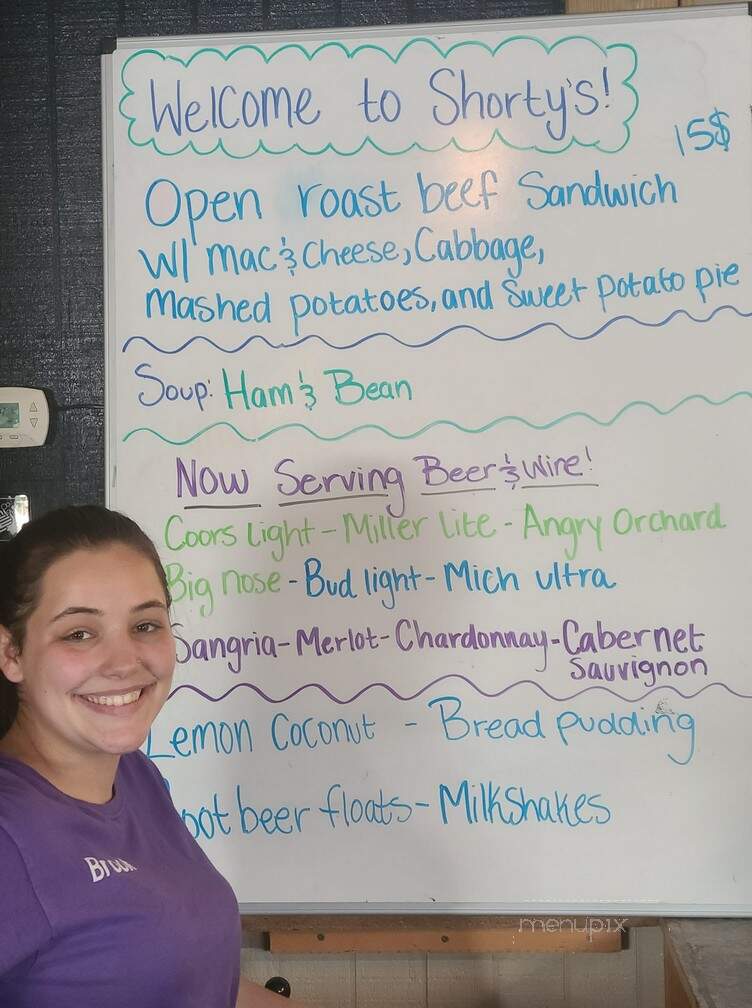 Welcome to Shorty's!
15$
Open roast beef Sandwich
W/ mac & Cheese, Cabbage,
mashed potatoes, and Sweet potato pie
Soup: Ham & Bean
Now Serving Beer & Wine!
Coors Light - Miller Lite - Angry Orchard
Big nose - Bud light - Mich ultra
Sangria - Merlot - Chardonnay - Cabernet
Sauvignon
Lemon Coconut - Bread pudding
oot beer floats - Milkshakes
menupix